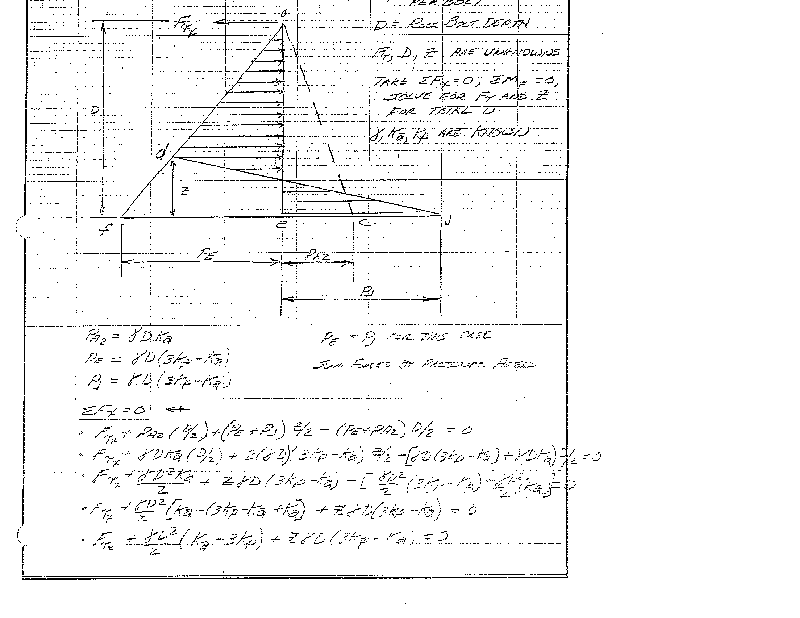 PER BOLT
D = BOLT DEPTH
D, Z ARE UNKNOWNS
TAKE ΣFx=0, ΣM =0,
SOLVE FOR AND Z
FOR TOTAL D
γ, Ka, Kp ARE KNOWN
D
d
Z
f
E
C
J
PE
PA2
PJ
PA2 = γDKa
PE = γD(3Kp-Ka)
PJ = γD(3Kp-Ka)
PE = PJ FOR THIS CASE
SUM FORCES BY PRESSURE AREAS
ΣFx=0
FTx + PA2(D/2)+(PE+PJ) Z/2 - (PE+PA2) D/2 = 0
FTx + γDKa(D/2) + 2(γD)(3Kp-Ka) Z/2 - [γD(3Kp-Ka)+γDKa] D/2 = 0
FTx + γD²Ka/2 + ZγD(3Kp-Ka) - [γD²/2 (3Kp-Ka) = 0
FTx + γD²/2 [Ka-(3Kp-Ka+Ka)] + ZγD(3Kp-Ka) = 0
FTx + γD²/2 (Ka-3Kp) + ZγD(3Kp-Ka) = 0